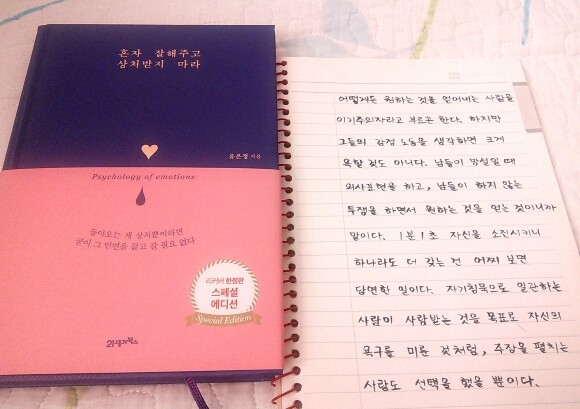 혼자 잘해주고
상처받지 마라
유은정 지음
Psychology of emotions
돌아오는 게 상처뿐이라면
굳이 그 인연을 끌고 갈 필요 없다
리커버 한정판
스페셜
에디션
Special Edition
21세기북스
어떻게든 원하는 것을 얻어내는 사람을
이기주의자라고 부르곤 한다. 하지만
그들의 감정 노동을 생각하면 크게
욕할 것도 아니다. 남들이 망설일 때
의사표현을 하고, 남들이 하지 않는
투쟁을 하면서 원하는 것을 얻는 것이니까
말이다. 1분 1초 자신을 소진시키니
하나라도 더 갖는 건 어찌 보면
당연한 일이다. 자기침묵으로 일관하는
사람이 사랑받는 것을 목표로 자신의
욕구를 미룬 것처럼, 주장을 펼치는
사람도 선택을 했을 뿐이다.